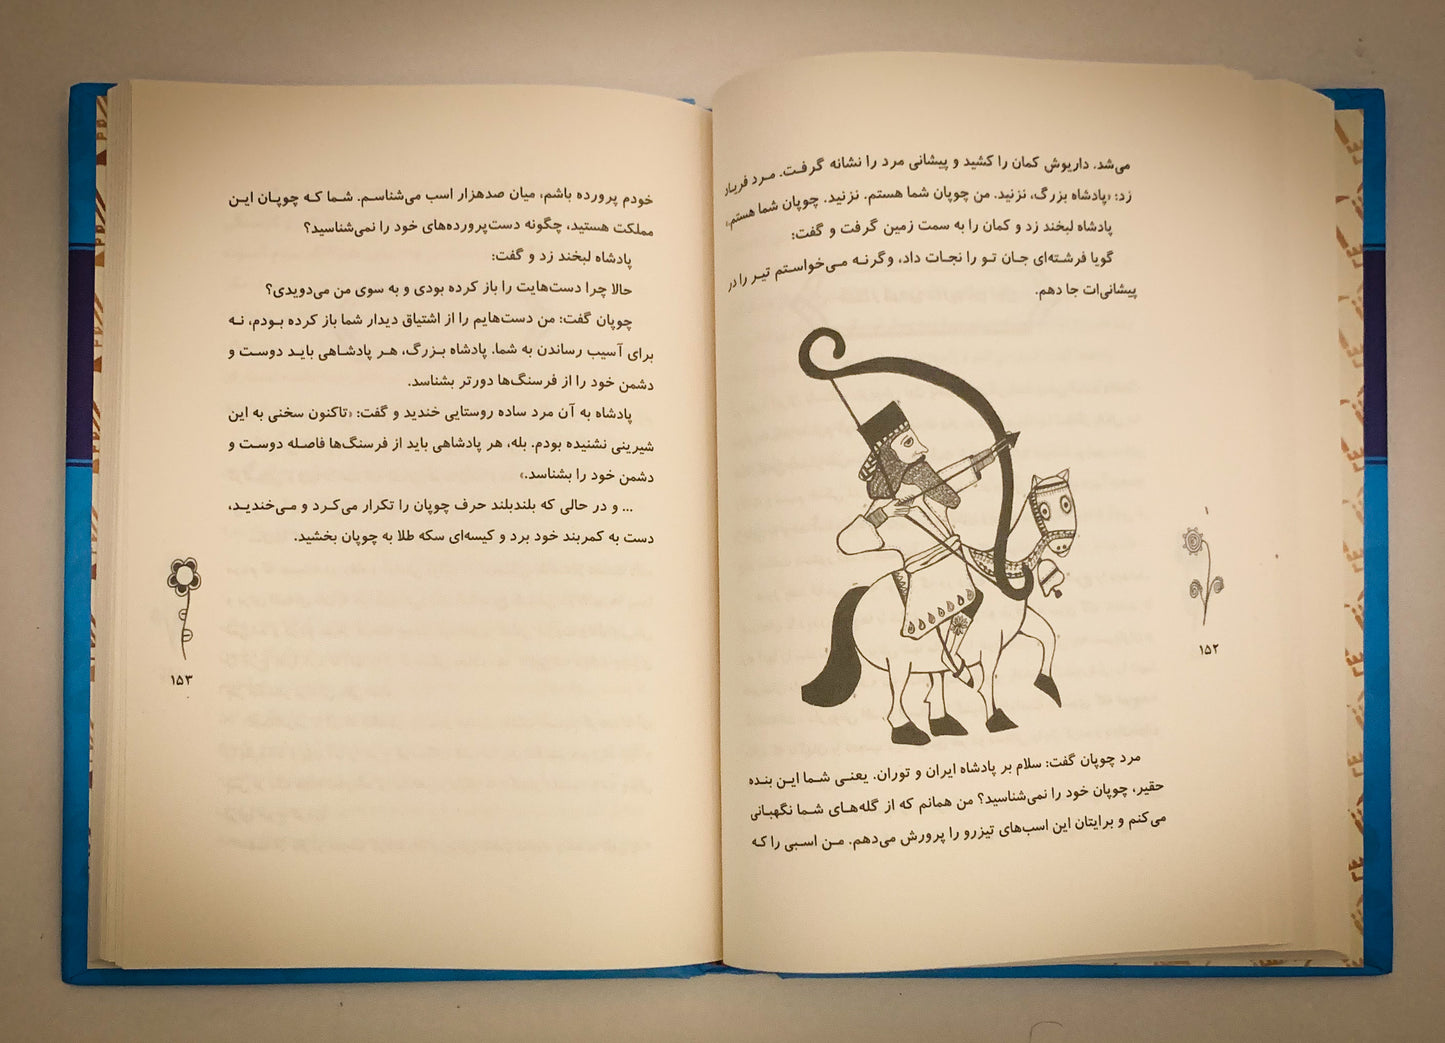 می‌شد. داریوش کمان را کشید و پیشانی مرد را نشانه گرفت. مرد فریاد
زد: «پادشاه بزرگ، نزنید. من چوپان شما هستم. نزنید. چوپان شما هستم.»
پادشاه لبخند زد و کمان را به سمت زمین گرفت و گفت:
گویا فرشته‌ای جان تو را نجات داد، وگرنه می‌خواستم تیر را در
پیشانی‌ات جا دهم.
مرد چوپان گفت: سلام بر پادشاه ایران و توران. یعنی شما این بنده
حقیر، چوپان خود را نمی‌شناسید؟ من همانم که از گله‌های شما نگهبانی
می‌کنم و برایتان این اسب‌های تیزرو را پرورش می‌دهم. من اسبی را که
۱۵۲
خودم پرورده باشم، میان صدهزار اسب می‌شناسم. شما که چوپان این
مملکت هستید، چگونه دست‌پرورده‌های خود را نمی‌شناسید؟
پادشاه لبخند زد و گفت:
حالا چرا دست‌هایت را باز کرده بودی و به سوی من می‌دویدی؟
چوپان گفت: من دست‌هایم را از اشتیاق دیدار شما باز کرده بودم، نه
برای آسیب رساندن به شما. پادشاه بزرگ، هر پادشاهی باید دوست و
دشمن خود را از فرسنگ‌ها دورتر بشناسد.
پادشاه به آن مرد ساده روستایی خندید و گفت: «تاکنون سخنی به این
شیرینی نشنیده بودم. بله، هر پادشاهی باید از فرسنگ‌ها فاصله دوست و
دشمن خود را بشناسد.»
... و در حالی که بلندبلند حرف چوپان را تکرار می‌کرد و می‌خندید،
دست به کمربند خود برد و کیسه‌ای سکه طلا به چوپان بخشید.
۱۵۳